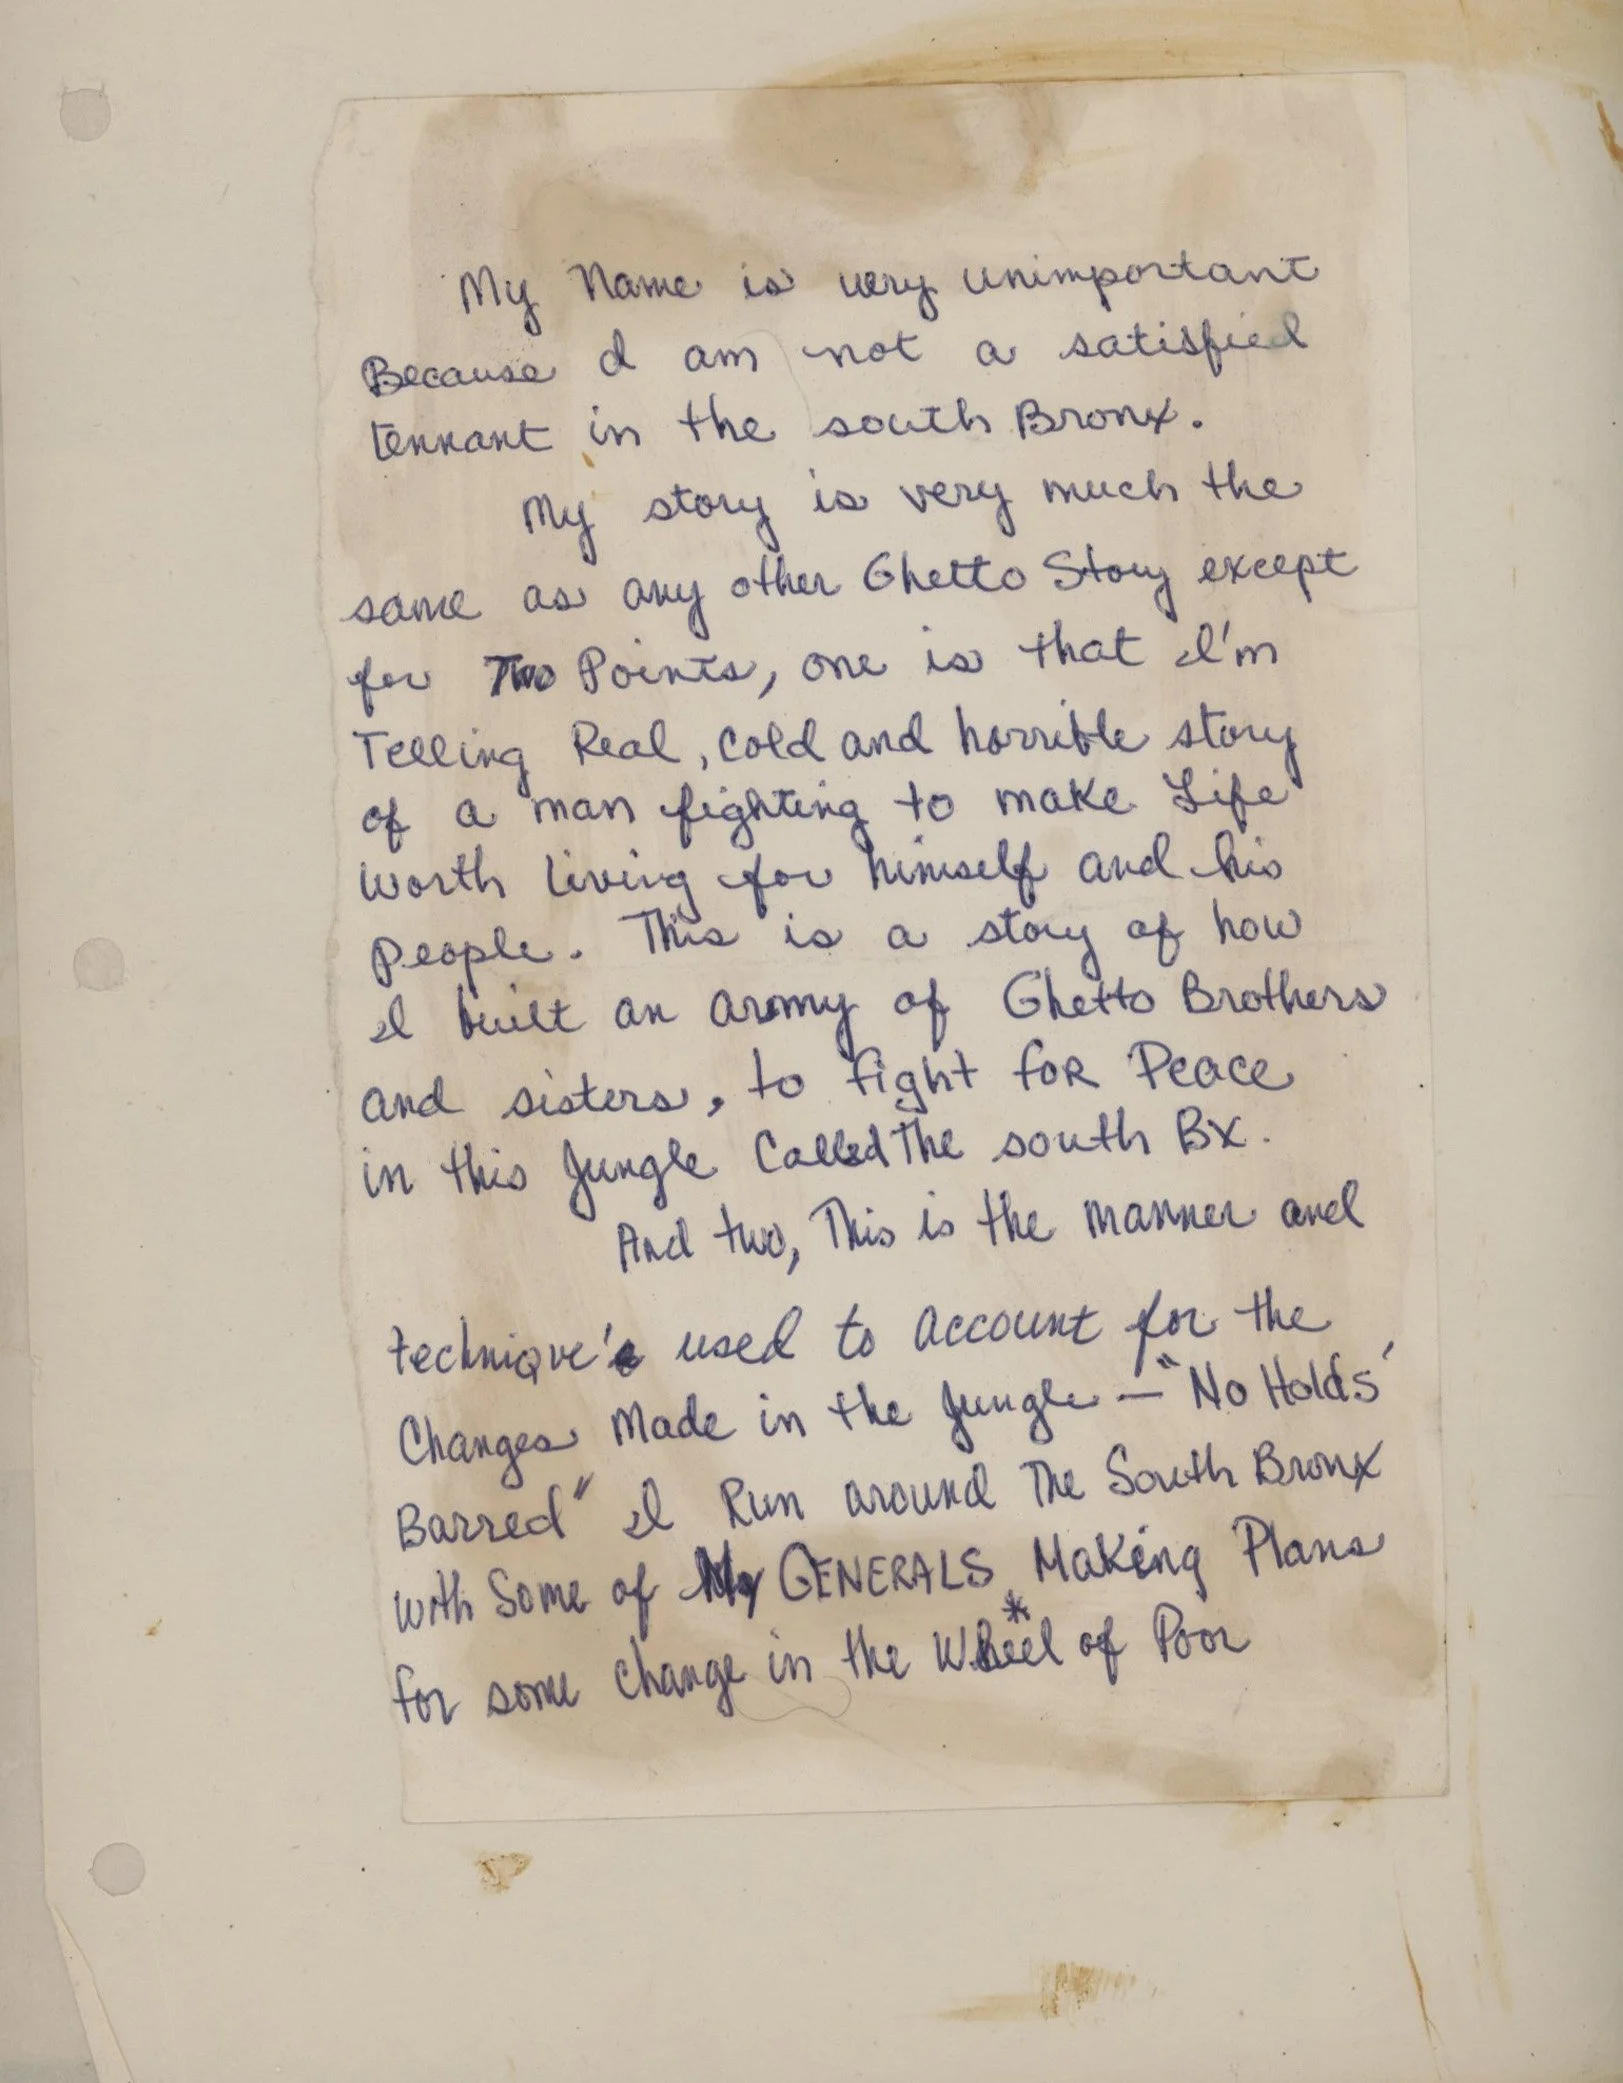 My Name is very unimportant
Because I am not a satisfied
tennant in the south Bronx.
My story is very much the
same as any other Ghetto Story except
for Two Points, one is that I'm
Telling Real, cold and horrible story
of a man fighting to make Life
worth living for himself and his
people. This is a story of how
I built an army of Ghetto Brothers
and sisters, to fight foR Peace
in this Jungle Called The south Bx.
And two, This is the manner and
technique's used to account for the
Changes Made in the Jungle – "No Holds'
Barred" I Run around The South Bronx
with Some of My GENERALS Making Plans
for some change in the Wheel* of Poor